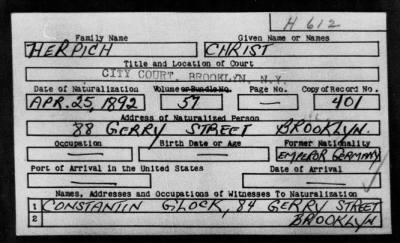 H 612
Family Name Given Name or Names
HERPICH CHRIST
Title and Location of Court
CITY COURT, BROOKLYN, N.Y.
Date of Naturalization Volume or Bundle No. Page No. Copy of Record No.
APR. 25, 1892 57 — 401
Address of Naturalized Person
88 GERRY STREET BROOKLYN.
Occupation Birth Date or Age Former Nationality
— — EMPEROR GERMANY
Port of Arrival in the United States Date of Arrival
— —
Names, Addresses and Occupations of Witnesses To Naturalization
1 CONSTANTIN GLOCK, 84 GERRY STREET
2 BROOKLYN